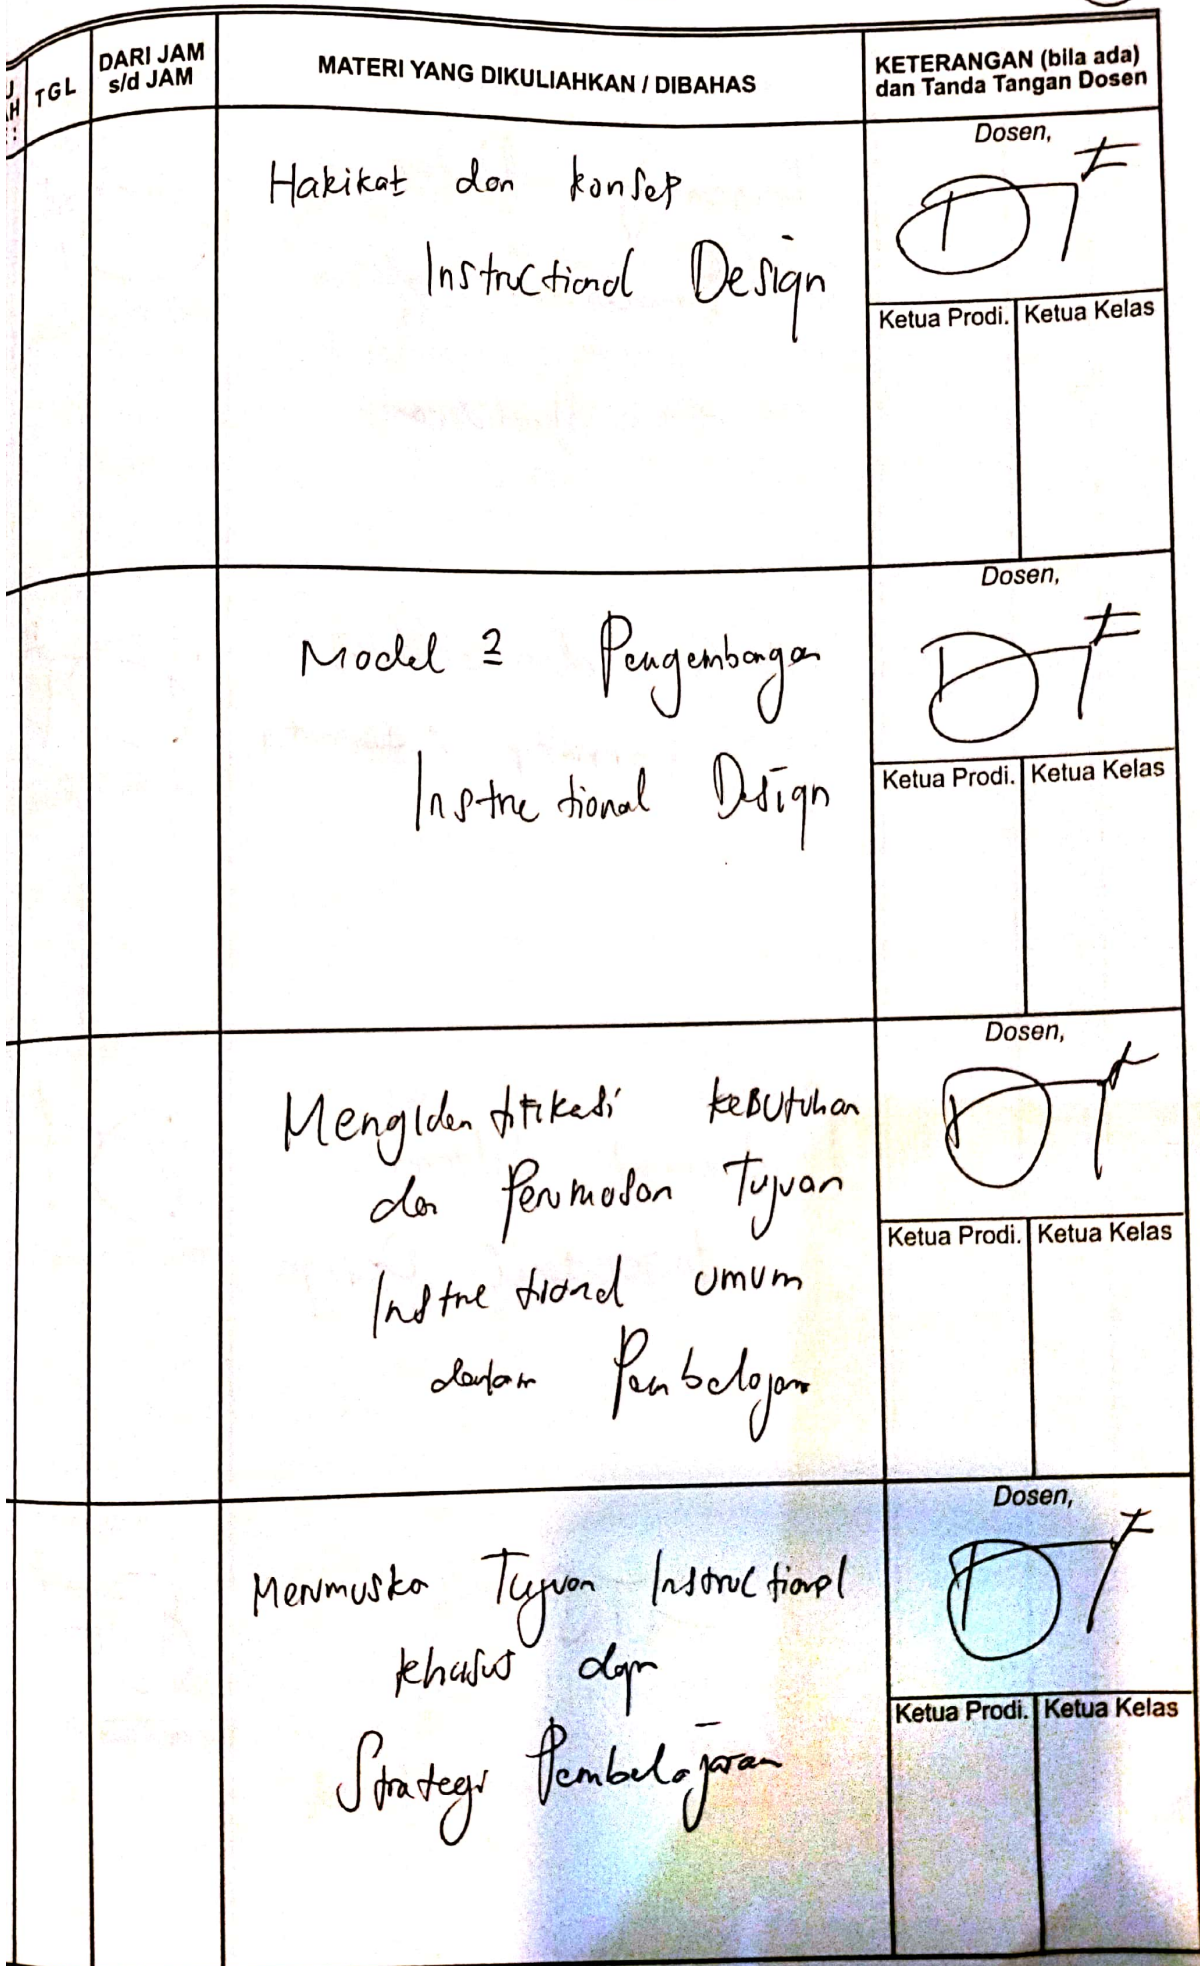 J
AH
:
TGL
DARI JAM
s/d JAM
MATERI YANG DIKULIAHKAN / DIBAHAS
KETERANGAN (bila ada)
dan Tanda Tangan Dosen
Hakikat dan konsep
Instructional Design
Dosen,
Ketua Prodi. Ketua Kelas
Model 2 Pengembangan
Instructional Design
Dosen,
Ketua Prodi. Ketua Kelas
Mengidentifikasi kebutuhan
dan Perumusan Tujuan
Instructional umum
dalam Pembelajaran
Dosen,
Ketua Prodi. Ketua Kelas
Merumuska Tujuan Instructional
khusus dan
Strategi Pembelajaran
Dosen,
Ketua Prodi. Ketua Kelas